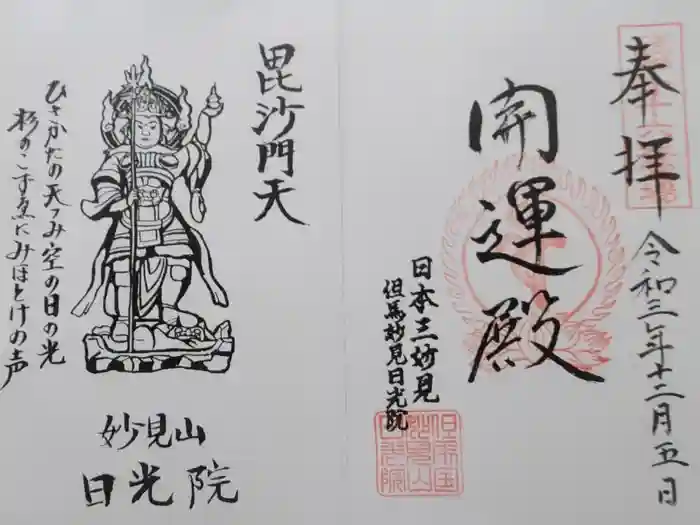 奉拝
令和三年十二月五日
開運殿
日本三妙見
但馬妙見日光院
毘沙門天
ひさかたの天つみ空の日の光
杉のこずゑにみほとけの声
妙見山
日光院